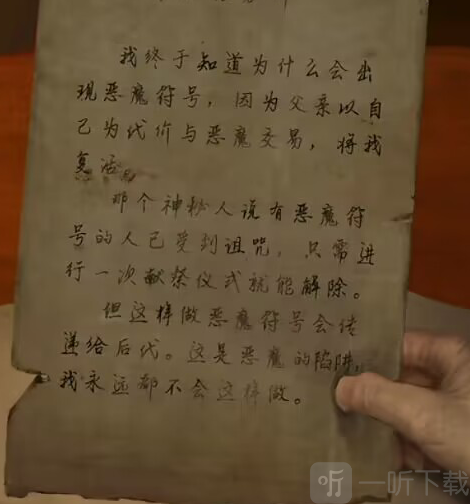 我终于知道为什么会出
现恶魔符号，因为父亲以自
己为代价与恶魔交易，将我
复活。
那个神秘人说有恶魔符
号的人已受到诅咒，只需进
行一次献祭仪式就能解除。
但这样做恶魔符号会传
递给后代。这是恶魔的陷阱，
我永远都不会这样做。
听 一听下载